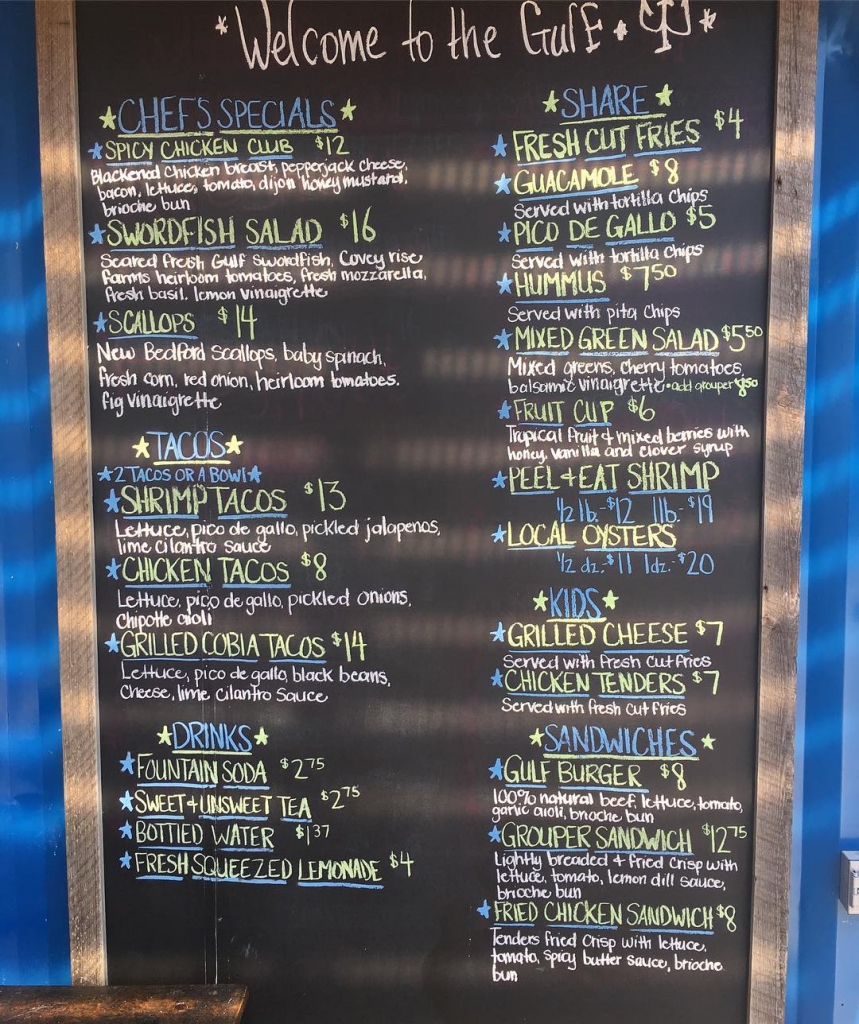 *Welcome to the Gulf • *
*CHEF'S SPECIALS*
*SPICY CHICKEN CLUB $12
Blackened chicken breast, pepperjack cheese,
bacon, lettuce, tomato, dijon honey mustard,
brioche bun
*SWORDFISH SALAD $16
Seared fresh Gulf swordfish, Covey rise
farms heirloom tomatoes, fresh mozzarella,
fresh basil, lemon vinaigrette
*SCALLOPS $14
New Bedford scallops, baby spinach,
fresh corn, red onion, heirloom tomatoes.
fig vinaigrette
*TACOS*
*2 TACOS OR A BOWL*
*SHRIMP TACOS $13
Lettuce, pico de gallo, pickled jalapenos,
lime cilantro sauce
*CHICKEN TACOS $8
Lettuce, pico de gallo, pickled onions,
chipotle aioli
*GRILLED COBIA TACOS $14
Lettuce, pico de gallo, black beans,
cheese, lime cilantro sauce
*DRINKS*
*FOUNTAIN SODA $2.75
*SWEET + UNSWEET TEA $2.75
*BOTTLED WATER $1.37
*FRESH SQUEEZED LEMONADE $4
*SHARE*
*FRESH CUT FRIES $4
*GUACAMOLE $8
Served with tortilla chips
*PICO DE GALLO $5
Served with tortilla chips
*HUMMUS $7.50
Served with pita chips
*MIXED GREEN SALAD $5.50
Mixed greens, cherry tomatoes,
balsamic vinaigrette • add grouper $8.50
*FRUIT CUP $6
Tropical fruit + mixed berries with
honey, vanilla and clover syrup
*PEEL + EAT SHRIMP
1/2 lb.-$12 1lb.-$19
*LOCAL OYSTERS
1/2 dz.-$11 1dz.-$20
*KIDS*
*GRILLED CHEESE $7
Served with fresh cut fries
*CHICKEN TENDERS $7
Served with fresh cut fries
*SANDWICHES*
*GULF BURGER $8
100% natural beef, lettuce, tomato,
garlic aioli, brioche bun
*GROUPER SANDWICH $12.75
Lightly breaded + fried crisp with
lettuce, tomato, lemon dill sauce,
brioche bun
*FRIED CHICKEN SANDWICH $8
Tenders fried crisp with lettuce,
tomato, spicy butter sauce, brioche
bun